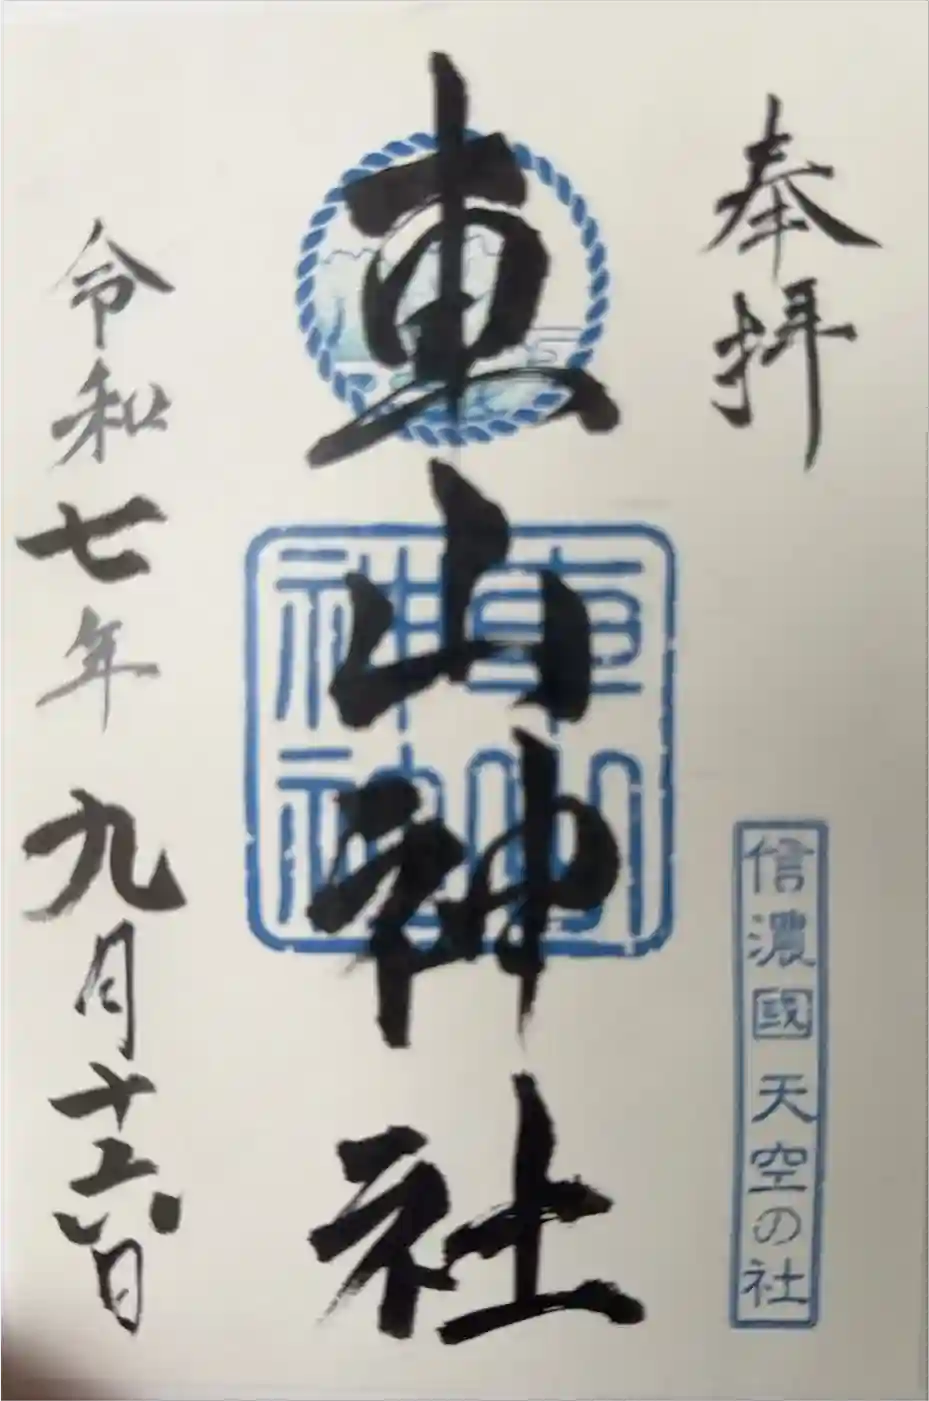 奉拝
信濃國 天空の社
車山神社
車山
神社
令和七年九月十六日